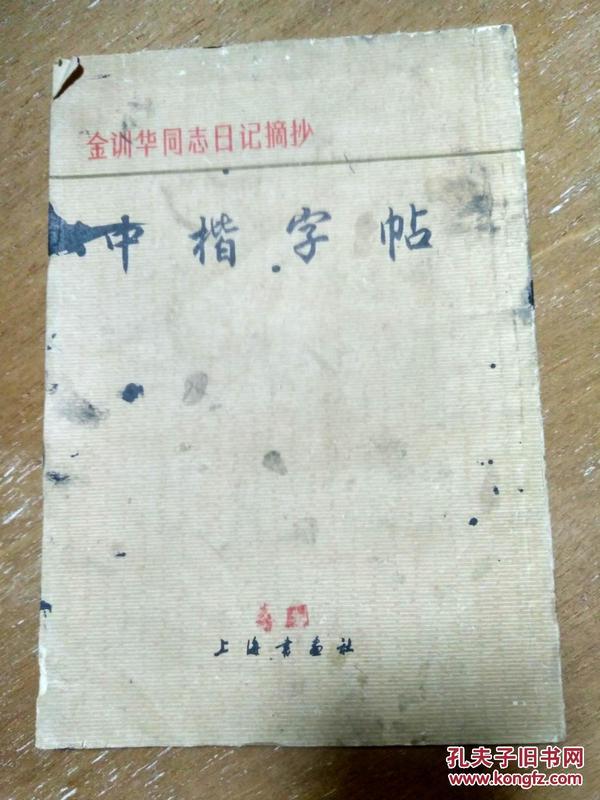 金训华同志日记摘抄
中楷字帖
上海书画社
孔夫子旧书网
www.kongfz.com